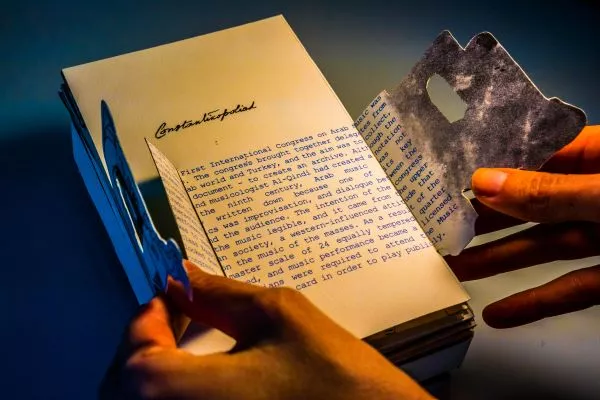 Constantinopoliad
First International Congress on Arab
The congress brought together deleg
world and Turkey, and the aim was to
document - to create an archive.
and musicologist Al-Qindi had created
the ninth century, Arab music
written down because one of
was improvisation, and dialogue
the audience. The intention of the
the music legible, and it came from
society, a western-influenced
the music of the masses. As a
master scale of 24 equally tempere
and music performance became
were required to attend
card in order to play publicly.
music was
from
collect,
the
was key
congress
the upper
that
quarter
of the
licenced
music